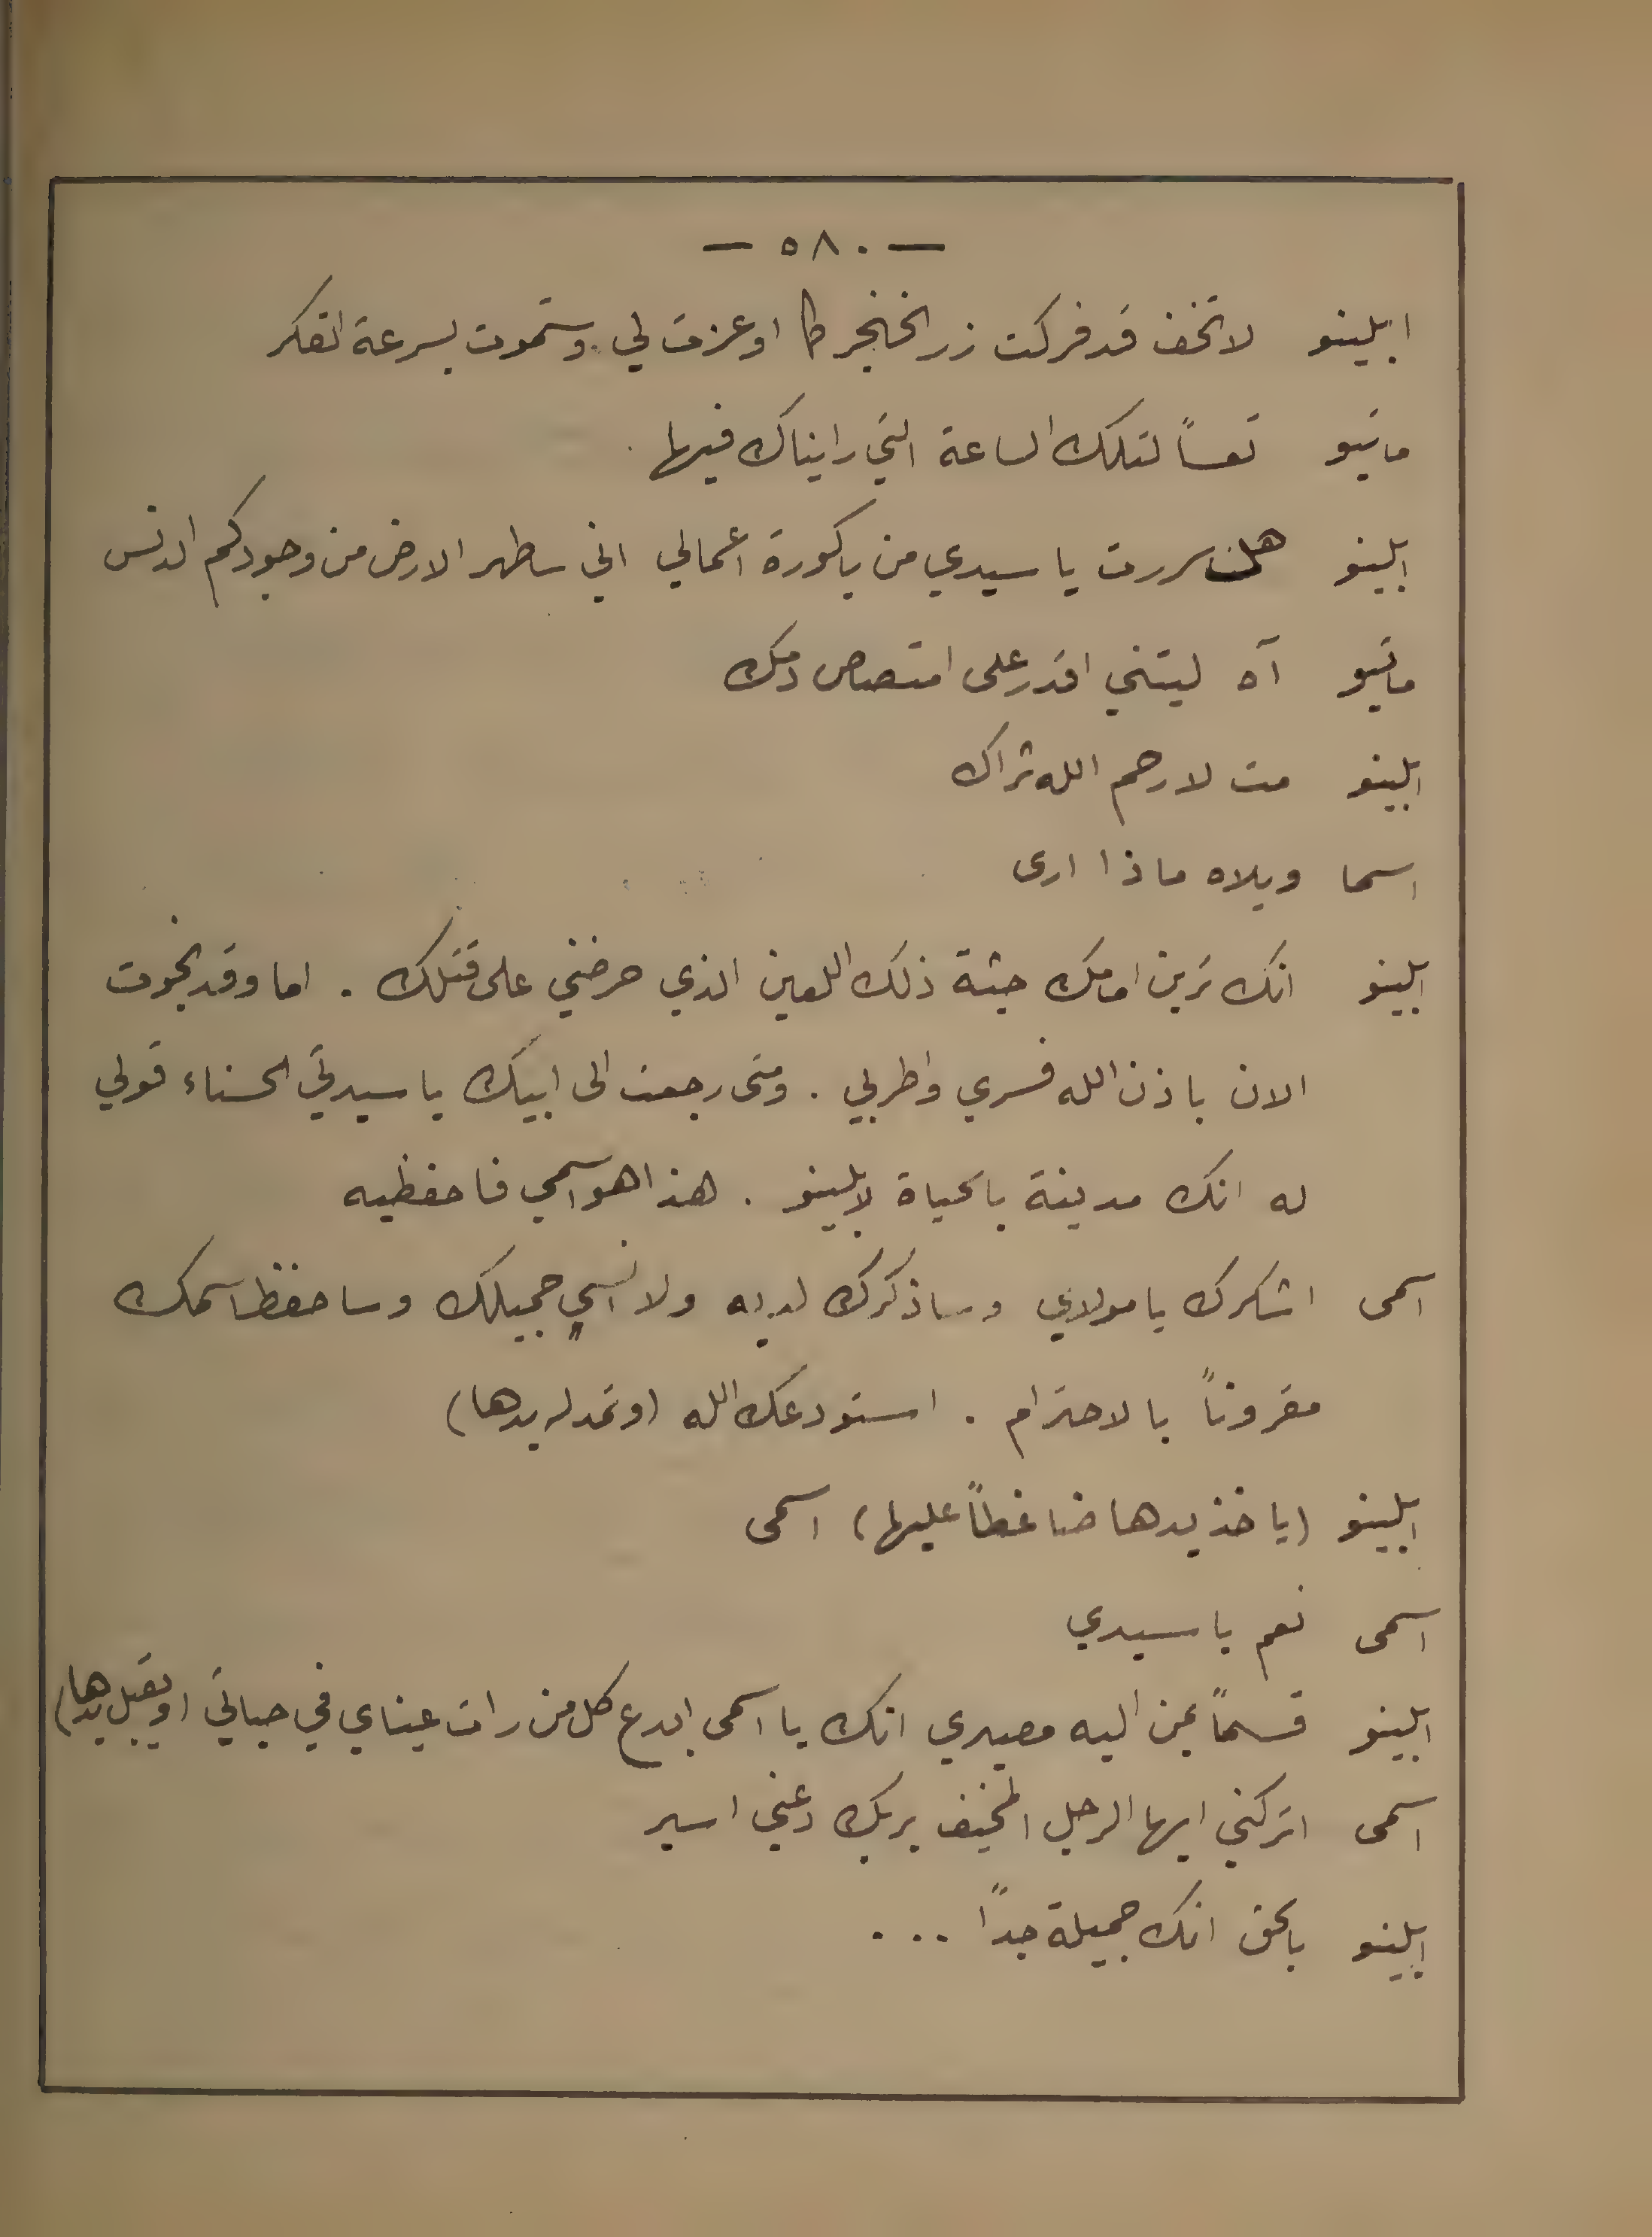 — ٥٨٠ —
ابلينو لا تخف قد فركت زر الخنجر كما اوعزت لي. وستموت بسرعة الفكر
ماتيو تعساً لتلك الساعة التي رايناك فيها.
ابلينو هل سررت يا سيدي من باكورة اعمالي اني ساطهر الارض من وجودكم الدنس
ماتيو آه ليتني اقدر على امتصاص دمك
ابلينو مت لا رحم الله ثراك
اسما ويلاه ماذا ارى
ابلينو انك ترين امامك جثة ذلك اللعين الذي حرضني على قتلك. اما وقد نجوت
الان باذن الله فسري واطربي. ومتى رجعت الى ابيك يا سيدتي الحسناء قولي
له انك مدينة بالحياة لابلينو. هذا هو اسمي فاحفظيه
اسمى اشكرك يا مولاي وساذكرك لديه ولا انسي جميلك وساحفظ اسمك
مقروناً بالاحترام. استودعك الله (وتمد له يدها)
ابلينو (ياخذ يدها ضاغطاً عليها) اسمى
اسمى نعم يا سيدي
ابلينو قسماً بمن اليه مصيري انك يا اسمى ابدع كل من رات عيناي في حياتي (ويقبل يدها)
اسمى اتركني ايها الرجل المخيف بربك دعني اسير
ابلينو بالحق انك جميلة جداً ...